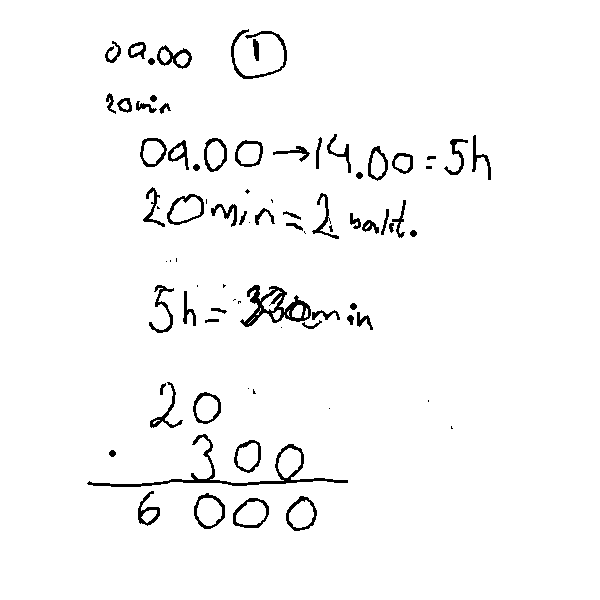 09.00 1
20min
09.00→14.00=5h
20min=2 bakt.
5h=300min
20
· 300
6 000